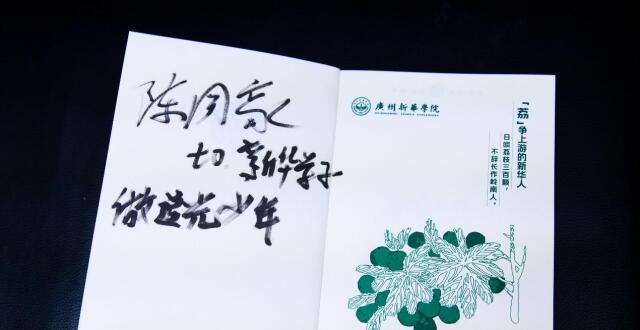 陈
新华学子
做追光少年
廣州新華學院
GUANGZHOU XINHUA UNIVERSITY
「荔」争上游的新华人
日啖荔枝三百颗，
不辞长作岭南人。